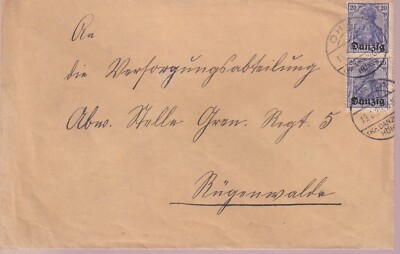 An
die Versorgungsabteilung
Abw. Stelle Gren. Regt. 5
Rügenwalde
20 20
Danzig
Danzig